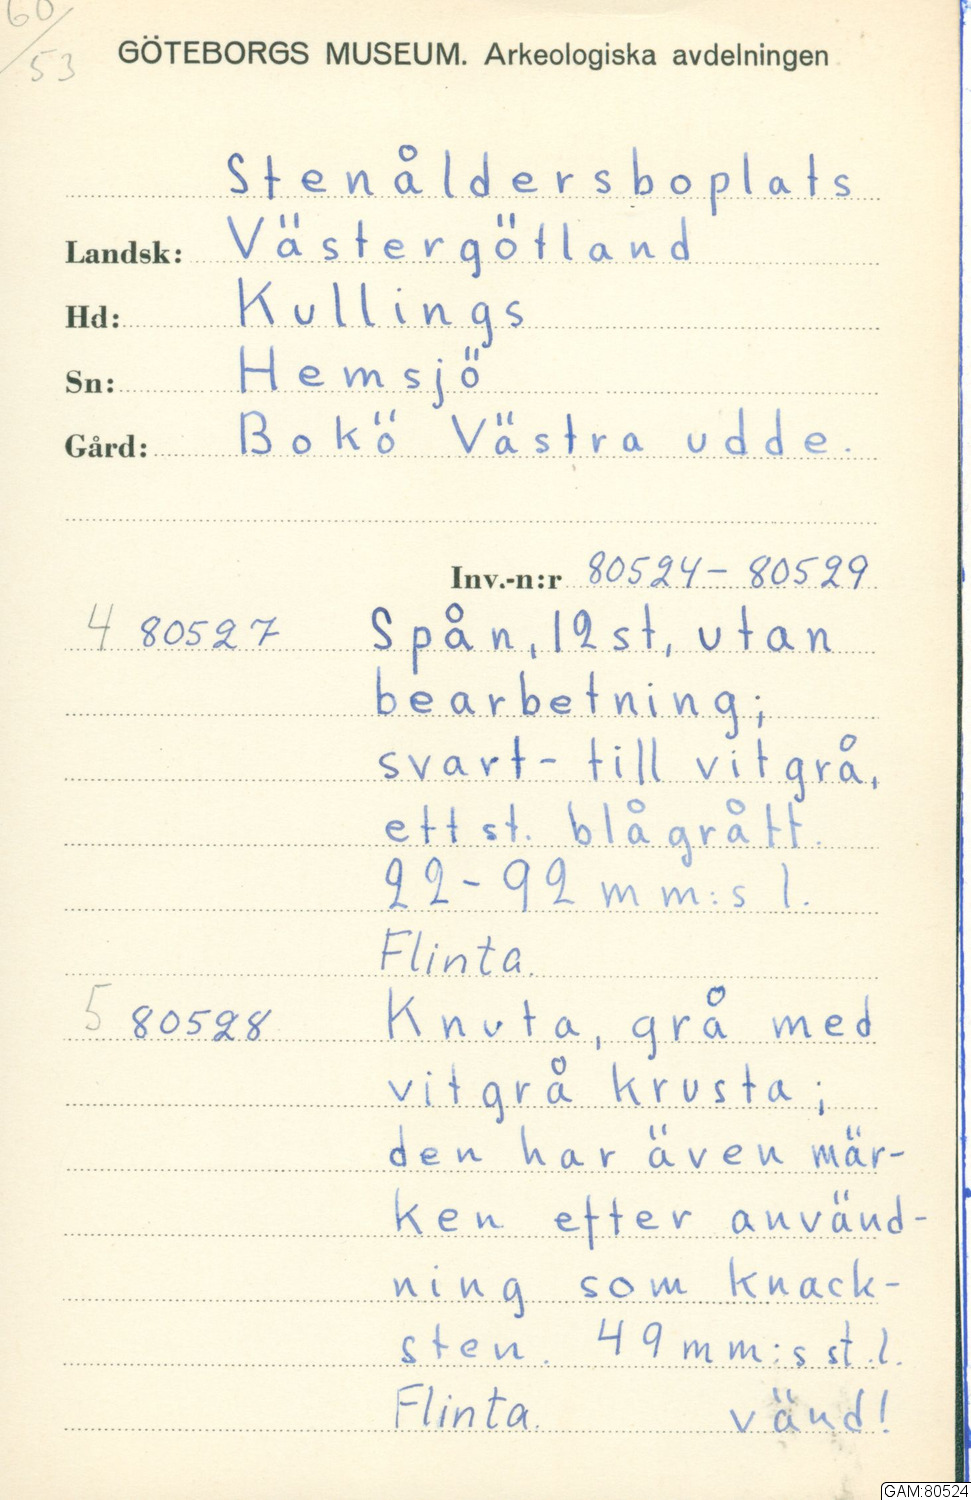 60/53
GÖTEBORGS MUSEUM. Arkeologiska avdelningen
Stenåldersboplats
Landsk: Västergötland
Hd: Kullings
Sn: Hemsjö
Gård: Bokö Västra udde.
Inv.-n:r 80524-80529
4 80527 Spån, 12 st, utan
bearbetning;
svart- till vitgrå,
ett st. blågrått.
22-92 mm:s l.
Flinta.
5 80528 Knuta, grå med
vitgrå krusta;
den har även mär-
ken efter använd-
ning som knack-
sten. 49 mm:s st. l.
Flinta. vänd!
GAM:80524